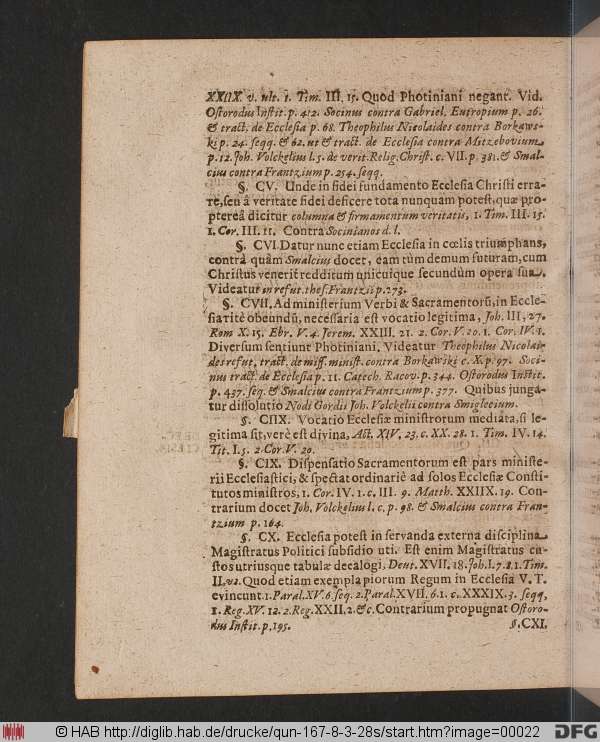 XXIIX. v. ult. 1. Tim. III, 15. Quod Photiniani negant. Vid.
Ostorodus Instit. p. 412. Socinus contra Gabriel. Eutropium p. 26.
& tract. de Ecclesia p. 68. Theophilus Nicolaides contra Borkaws-
ki p. 24. seqq. & 62. ut & tract. de Ecclesia contra Mitzebovium
p. 12. Joh. Volckelius l. 5. de verit. Relig. Christ. c. VII. p. 381. & Smal-
cius contra Frantzium p. 254. seqq.
§. CV. Unde in fidei fundamento Ecclesia Christi erra-
re, seu â veritate fidei deficere tota nunquam potest, quæ pro-
ptereâ dicitur columna & firmamentum veritatis, 1. Tim. III. 15.
1. Cor. III. 11. Contra Socinianos d. l.
§. CVI. Datur nunc etiam Ecclesia in cœlis triumphans,
contrà quàm Smalcius docet, eam tùm demum futuram, cum
Christus venerit redditum unicuique secundùm opera sua.
Videatur in refut. thes. Frantzii p. 273.
§. CVII. Ad ministerium Verbi & Sacramentorũ, in Eccle-
sia ritè obeundũ, necessaria est vocatio legitima, Joh. III, 27.
Rom X. 15. Ebr. V. 4. Jerem. XXIII. 21. 2. Cor. V. 20. 1. Cor. IV. 1.
Diversum sentiunt Photiniani. Videatur Theophilus Nicolai-
des refut. tract. de miss. minist. contra Borkawski c. X. p. 97. Soci-
nus tract. de Ecclesia p. 11. Catech. Racov. p. 344. Ostorodus Instit.
p. 437. seq. & Smalcius contra Frantzium p. 377. Quibus junga-
tur dissolutio Nodi Gordii Joh. Volckelii contra Smiglecium.
§. CIIX. Vocatio Ecclesiæ ministrorum mediata, si le-
gitima sit, verè est divina, Act. XIV. 23. c. XX. 28. 1. Tim. IV. 14.
Tit. I. 5. 2 Cor. V. 20.
§. CIX. Dispensatio Sacramentorum est pars ministe-
rii Ecclesiastici, & spectat ordinariè ad solos Ecclesiæ Consti-
tutos ministros, 1. Cor. IV. 1. c. III. 9. Matth. XXIIX. 19. Con-
trarium docet Joh. Volckelius l. c. p. 98. & Smalcius contra Fran-
tzium p. 164.
§. CX. Ecclesia potest in servanda externa disciplina
Magistratus Politici subsidio uti. Est enim Magistratus cu-
stos utriusque tabulæ decalogi. Deut. XVII. 18. Joh. I. 7. 8. 1. Tim.
II. v2. Quod etiam exempla piorum Regum in Ecclesia V. T.
evincunt. 1. Paral. XV. 6. seq. 2. Paral. XVII. 6. 1. c. XXXIX. 3. seqq.
1. Reg. XV. 12. 2. Reg. XXII. 2. &c. Contrarium propugnat Ostoro-
dus Instit. p. 195.
§. CXI.
© HAB http://diglib.hab.de/drucke/qun-167-8-3-28s/start.htm?image=00022
DFG